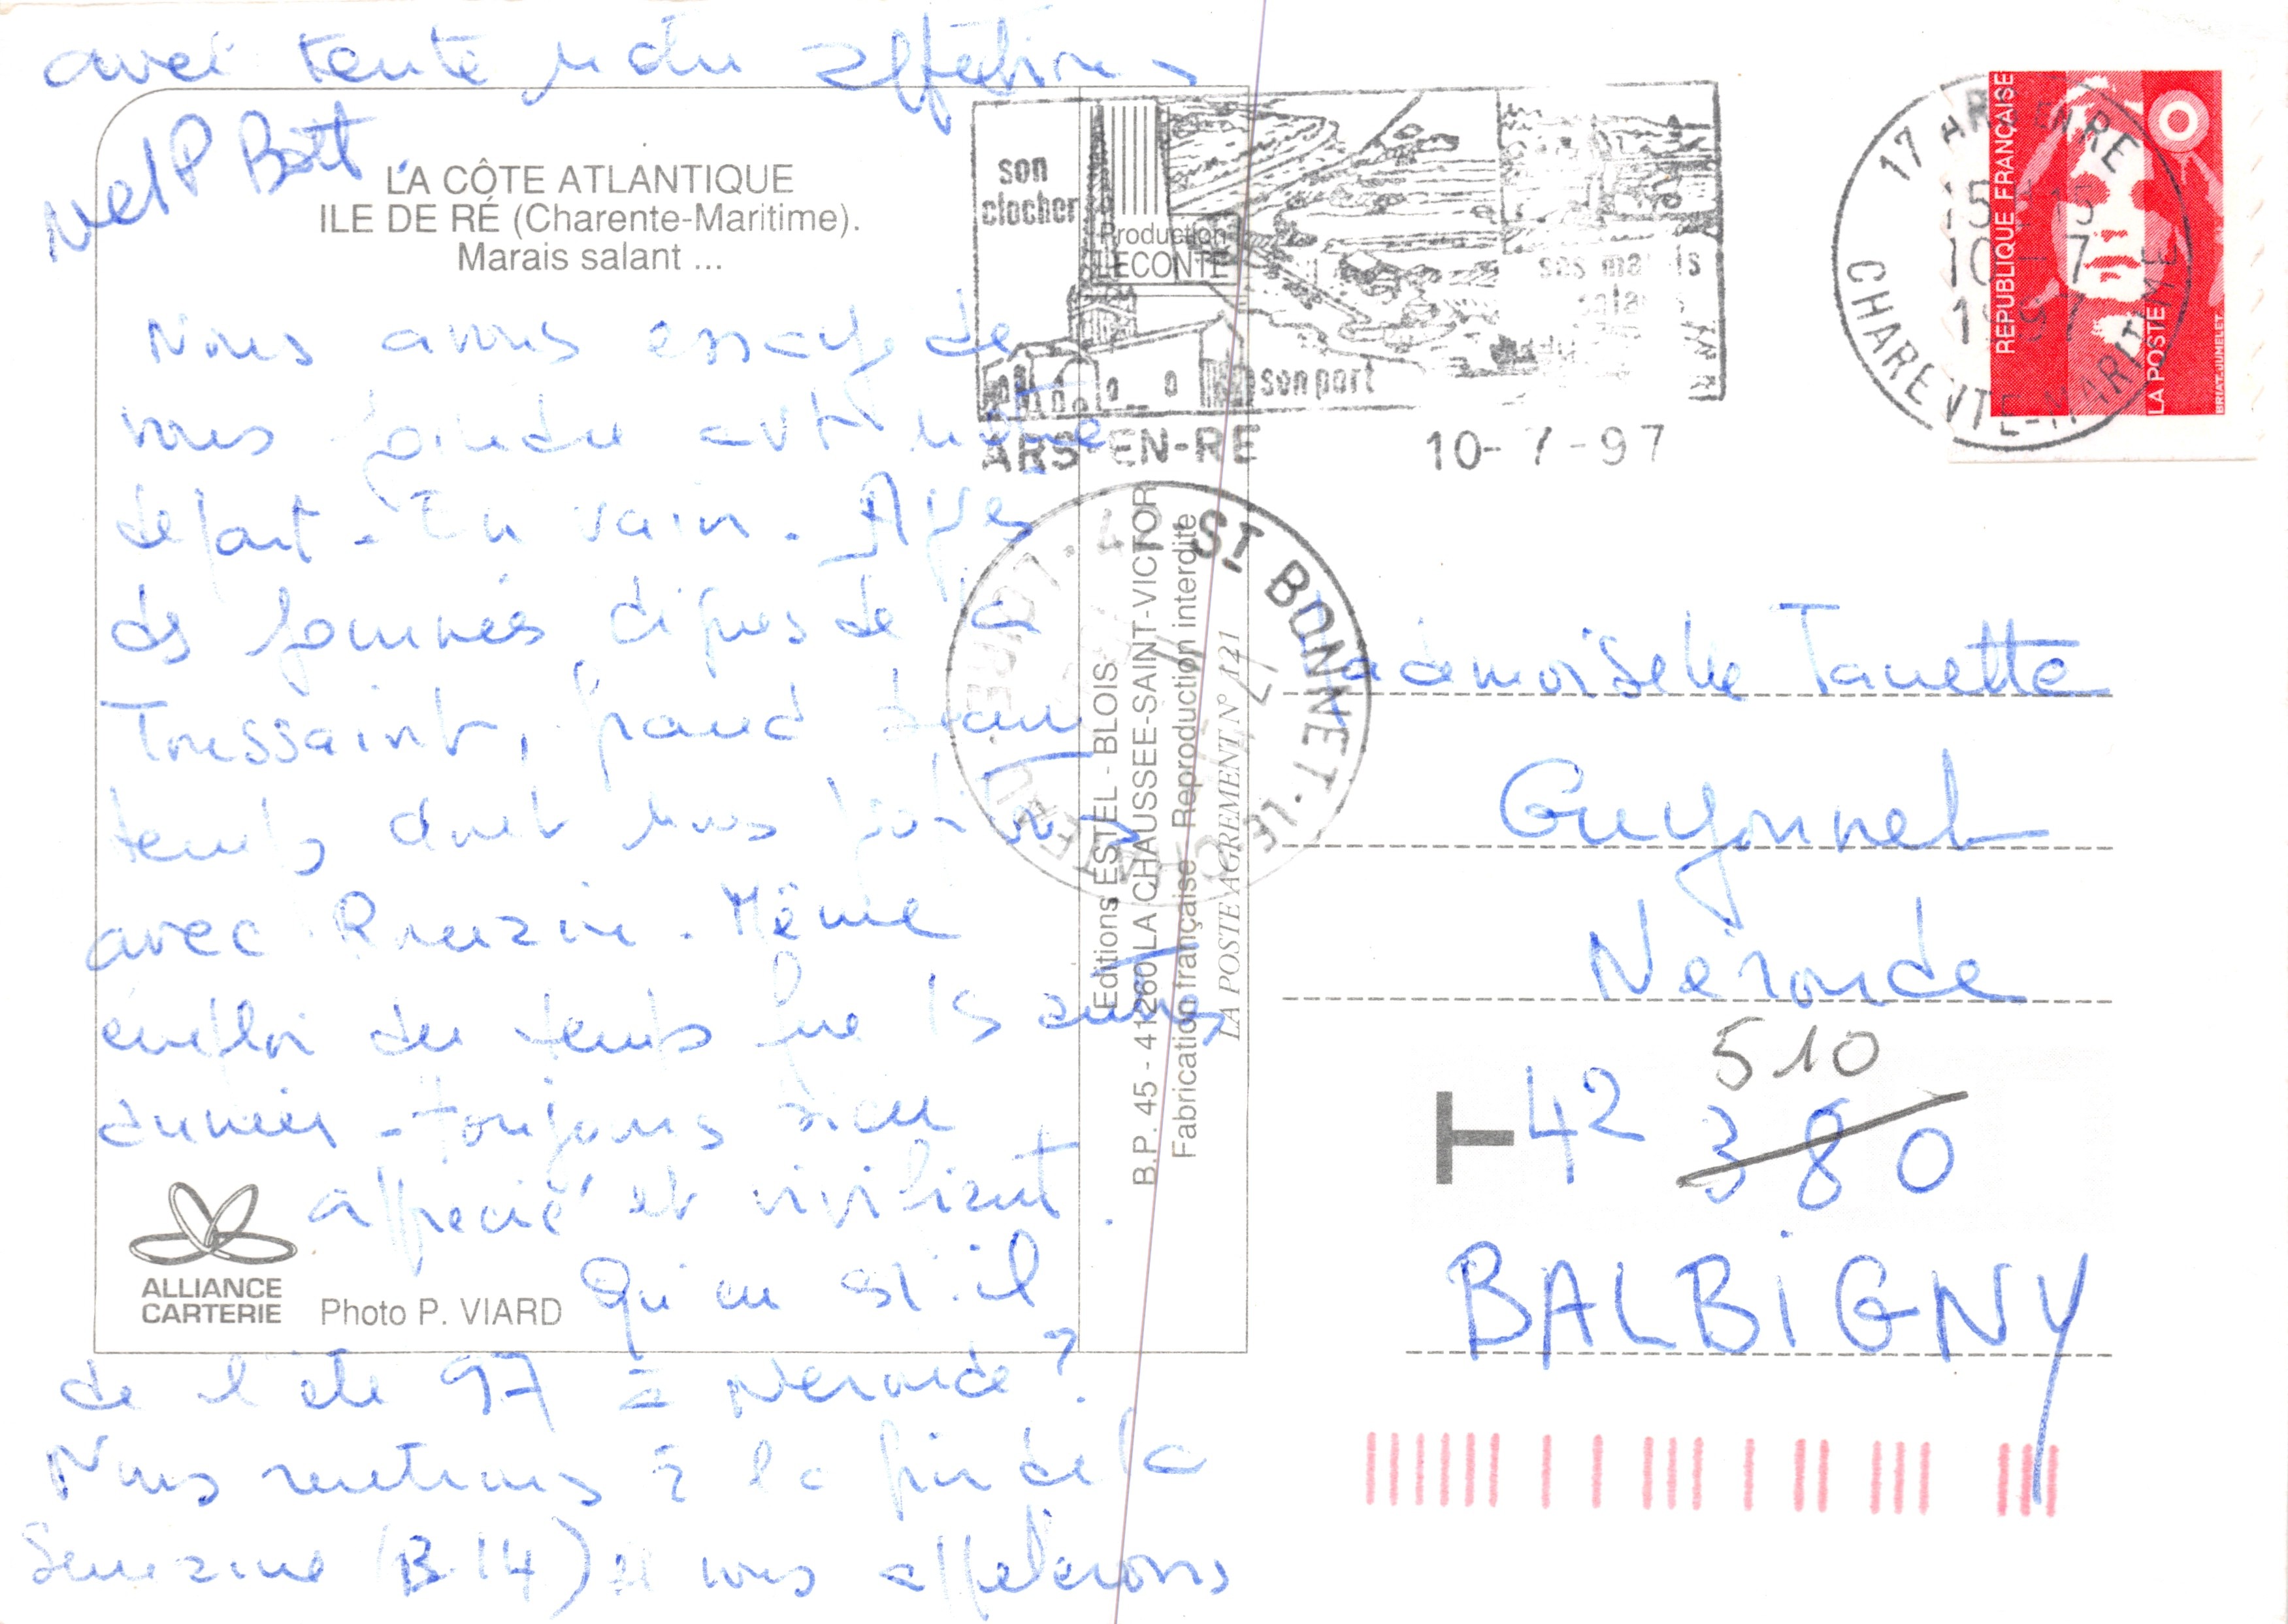 avec toute notre affection
LA CÔTE ATLANTIQUE
ILE DE RÉ (Charente-Maritime).
Marais salant ...
Nous avons essayé de
vous joindre avt notre
départ - En vain. Après
des journées dignes de la
Toussaint, grand beau
temps dont nous profitons
avec. Même
emploi du temps que les autres
années - toujours bien
apprécié et vivifiant.
Qu'en est-il
de l'été 97 à Néronde ?
Nous rentrons à la fin de la
Semaine (13.14) et vous appellerons
ALLIANCE
CARTERIE
Photo P. VIARD
Production
LECONTE
Editions ESTEL - BLOIS
B.P. 45 - 41260 LA CHAUSSEE-SAINT-VICTOR
Fabrication française Reproduction interdite
LA POSTE AGREMENT N° 121
son
clocher
ses marais
salants
son port
ARS-EN-RE
10-7-97
17 ARS-EN-RE
10 7
1997
CHARENTE-MARITIME
REPUBLIQUE FRANÇAISE
LA POSTE
BRIAT.JUMELET
ST BONNET-LE
Mademoiselle Nanette
Guyonnet
Néronde
510
T 42 380
BALBIGNY